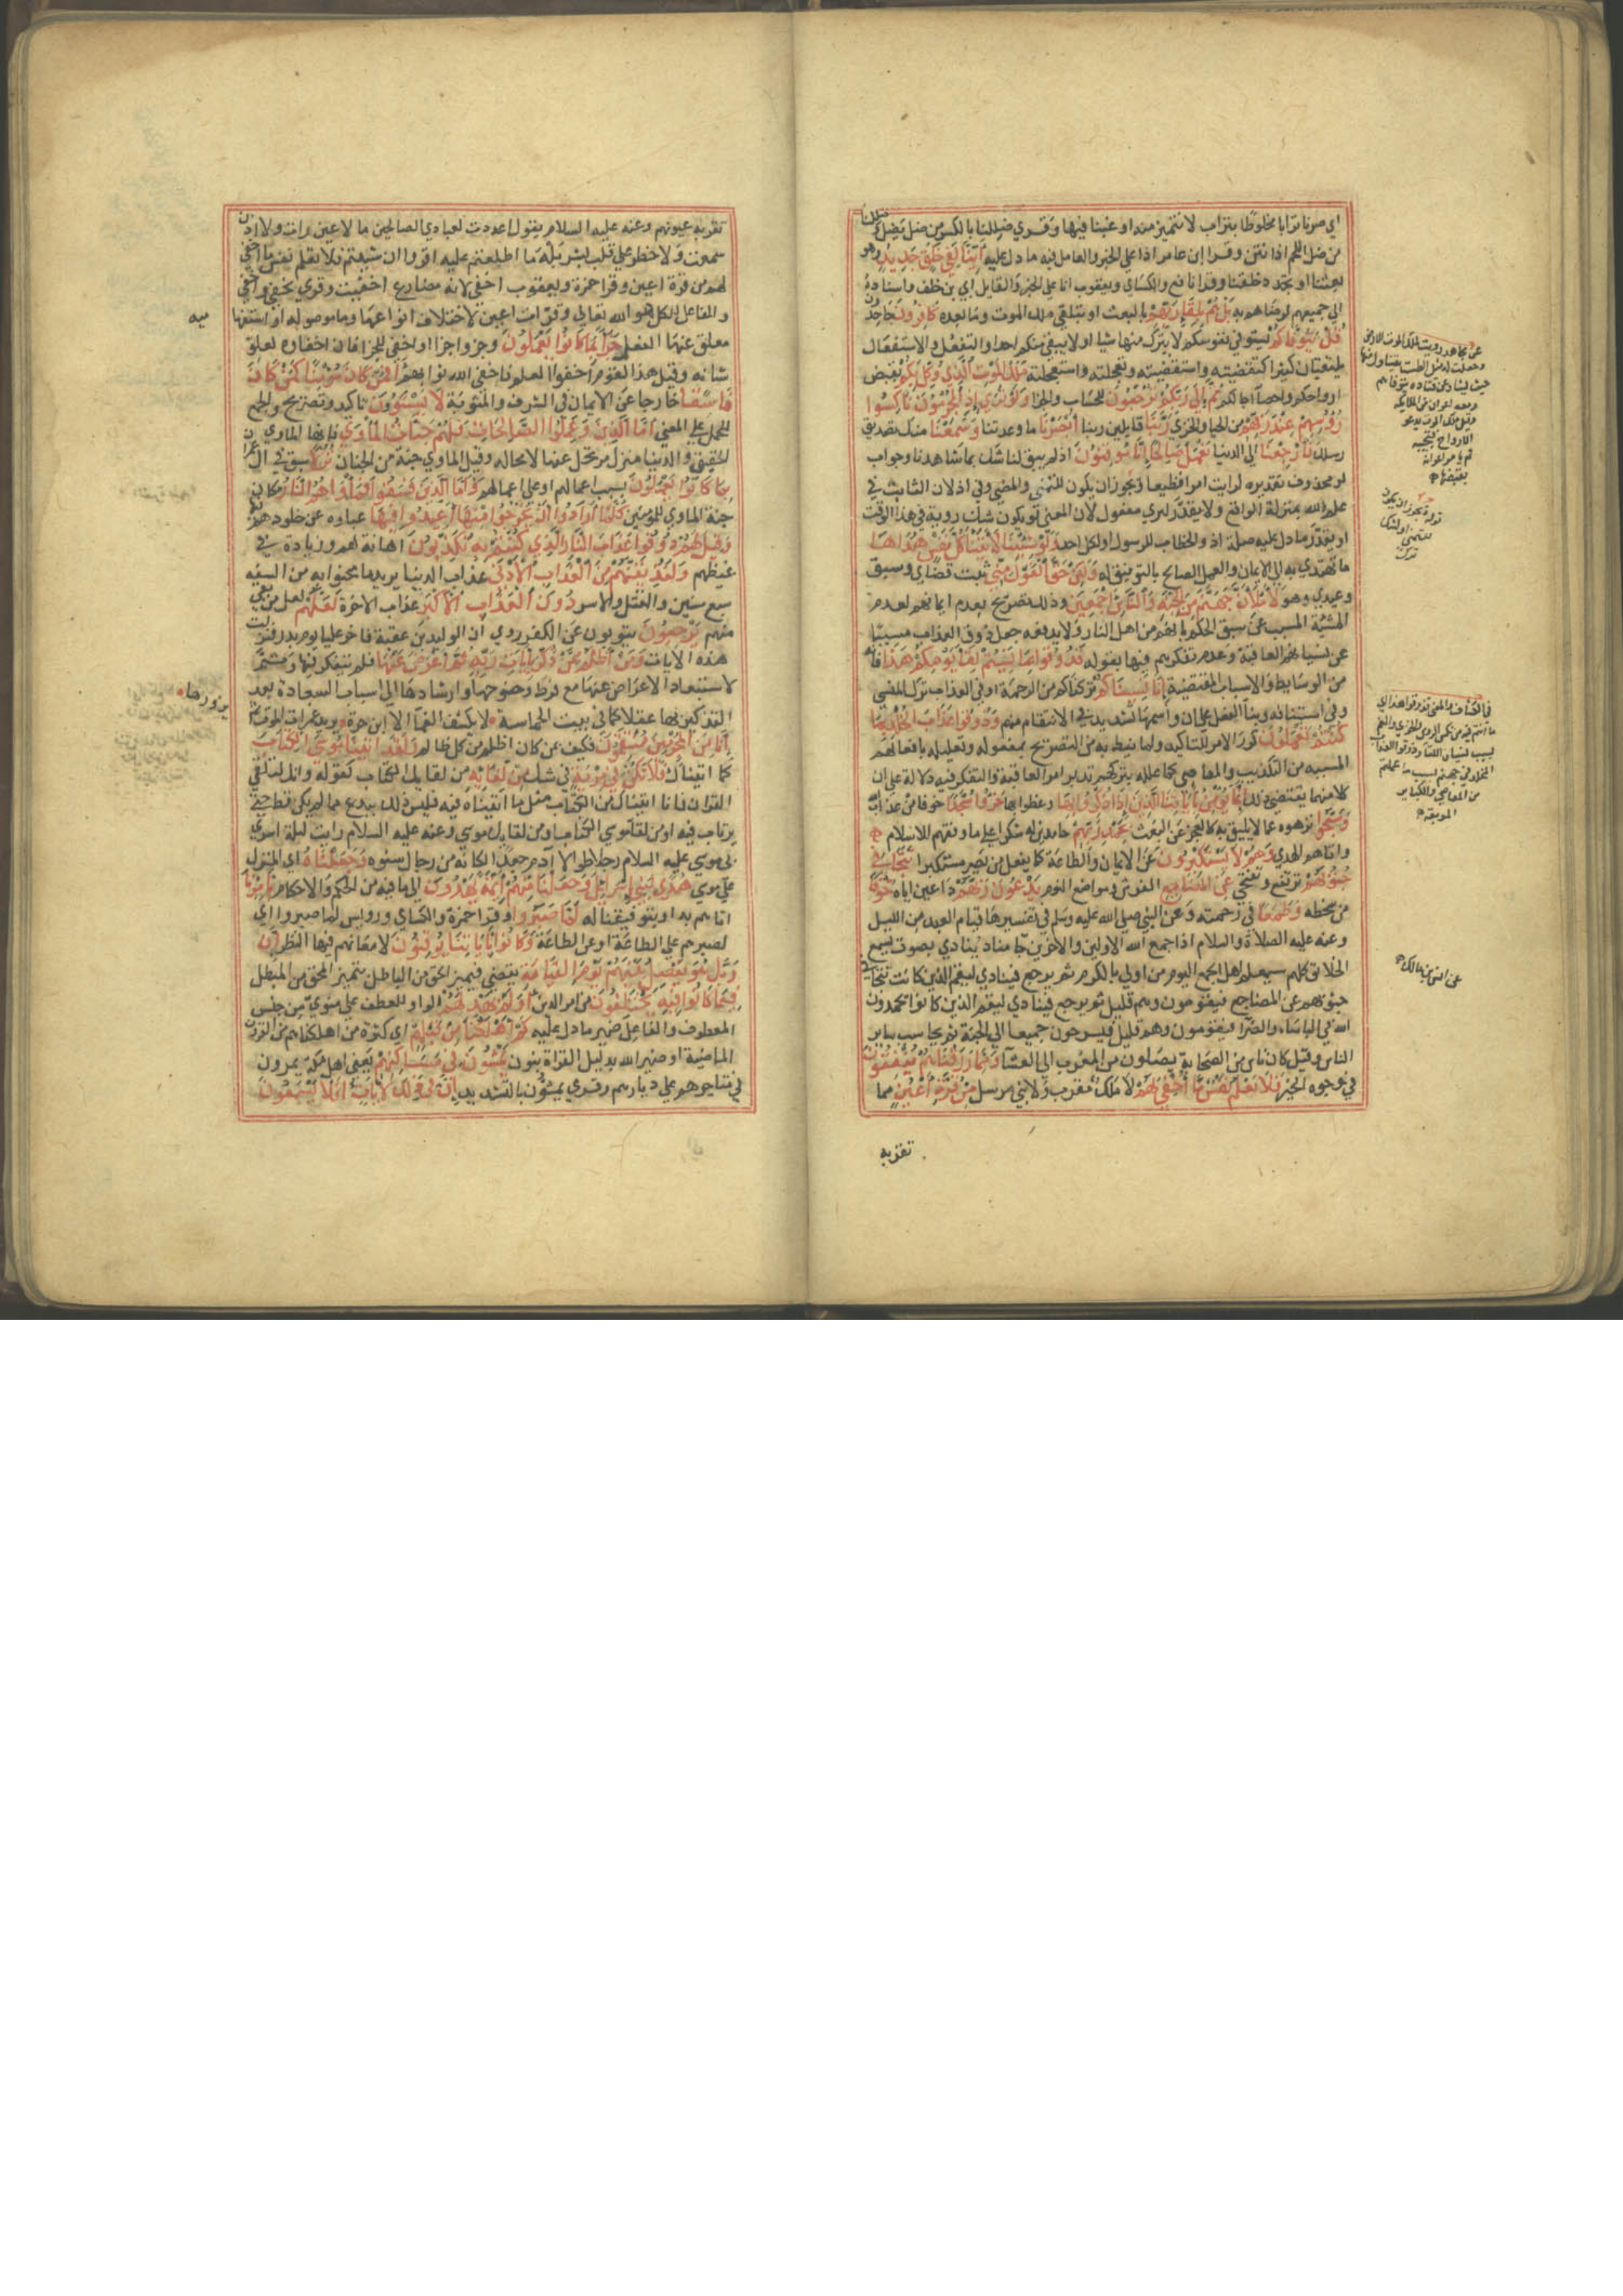 اي صرنا ترابا مخلوطا بتراب لا نتميز منه او غبنا فيها وقري ضللنا بالكسر من ضل يضل وصللنا
من صل اللحم اذا نتن وقرا ابن عامر اذا علي الخبر والعامل فيه ما دل عليه أَئِنَّا لَفِي خَلْقٍ جَدِيدٍ وهو
نبعث او يجدد خلقنا وقرا نافع والكسائي ويعقوب انا علي الخبر والقايل ابي بن خلف واسناده
الي جميعهم لرضاهم به بَلْ هُمْ بِلِقَاءِ رَبِّهِمْ بالبعث او بتلقي ملك الموت وما بعده كَافِرُونَ جاحدون
قُلْ يَتَوَفَّاكُمْ يستوفي نفوسكم لا يترك منها شيا او لا يبقي منكم احدا والتفعل والاستفعال
يلتقيان كثيرا كتقصيته واستقصيته وتعجلته واستعجلته مَلَكُ الْمَوْتِ الَّذِي وُكِّلَ بِكُمْ بقبض
ارواحكم واحصا آجالكم ثُمَّ إِلَى رَبِّكُمْ تُرْجَعُونَ للحساب والجزا وَلَوْ تَرَى إِذِ الْمُجْرِمُونَ نَاكِسُوا
رُؤُسِهِمْ عِنْدَ رَبِّهِمْ من الحيا والخزي رَبَّنَا قايلين ربنا أَبْصَرْنَا ما وعدتنا وَسَمِعْنَا منك تصديق
رسلك فَارْجِعْنَا الي الدنيا نَعْمَلْ صَالِحًا إِنَّا مُوقِنُونَ اذ لم يبق لنا شك بما شاهدنا وجواب
لو محذوف تقديره لرايت امرا فظيعا ويجوز ان يكون للتمني والمضي وفي اذ لان الثابت في
علم الله بمنزلة الواقع ولا يقدر لتري مفعول لان المعني لو يكون منك روية في هذا الوقت
او يقدر ما دل عليه صلة اذ والخطاب للرسول او لكل احد وَلَوْ شِئْنَا لَآتَيْنَا كُلَّ نَفْسٍ هُدَاهَا
ما تهتدي به الي الايمان والعمل الصالح بالتوفيق له وَلَكِنْ حَقَّ الْقَوْلُ مِنِّي ثبت قضاي وسبق
وعيدي وهو لَأَمْلَأَنَّ جَهَنَّمَ مِنَ الْجِنَّةِ وَالنَّاسِ أَجْمَعِينَ وذلك تصريح بعدم ايمانهم لعدم
المشئية المسبب عن سبق الحكم بانهم من اهل النار ولا يدفعه جعل ذوق العذاب مسببا
عن نسيانهم العاقبة وعدم تفكرهم فيها بقوله فَذُوقُوا بِمَا نَسِيتُمْ لِقَاءَ يَوْمِكُمْ هَذَا فانه
من الوسايط والاسباب المقتضية إِنَّا نَسِينَاكُمْ تركناكم من الرحمة او في العذاب ترك المنسي
وفي استينافه وبنا الفعل علي ان واسمها تشديد في الانتقام منهم وَذُوقُوا عَذَابَ الْخُلْدِ بِمَا
كُنْتُمْ تَعْمَلُونَ كرر الامر للتاكيد ولما نيط به من التصريح بمفعوله وتعليله بافعالهم
السيية من التكذيب والمعاصي كما علله بتركهم تدبر امر العاقبة والتفكر فيه دلالة علي ان
كلا منهما يقتضي ذلك إِنَّمَا يُؤْمِنُ بِآيَاتِنَا الَّذِينَ إِذَا ذُكِّرُوا بِهَا وعظوا بها خَرُّوا سُجَّدًا خوفا من عذاب الله
وَسَبَّحُوا نزهوه عما لا يليق به كالعجز عن البعث بِحَمْدِ رَبِّهِمْ حامدين له شكرا علي ما وفقهم للاسلام
واتاهم الهدي وَهُمْ لَا يَسْتَكْبِرُونَ عن الايمان والطاعة كما يفعل من يصر مستكبرا تَتَجَافَى
جُنُوبُهُمْ ترتفع وتتنحي عَنِ الْمَضَاجِعِ الفرش ومواضع النوم يَدْعُونَ رَبَّهُمْ داعين اياه خَوْفًا
من سخطه وَطَمَعًا في رحمته وعن النبي صلي الله عليه وسلم في تفسيرها قيام العبد من الليل
وعنه عليه الصلاة والسلام اذا جمع الله الاولين والاخرين جا مناد ينادي بصوت يسمع
الخلائق كلهم سيعلم اهل الجمع اليوم من اولي بالكرم ثم يرجع فينادي ليقم الذين كانت تتجافي
جنوبهم عن المضاجع فيقومون وهم قليل ثم يرجع فينادي ليقم الذين كانوا يحمدون
الله في الباسا والضرا فيقومون وهم قليل فيسرحون جميعا الي الجنة ثم يحاسب ساير
الناس وقيل كان ناس من الصحابة يصلون من المغرب الي العشا وَمِمَّا رَزَقْنَاهُمْ يُنْفِقُونَ
في وجوه الخير فَلَا تَعْلَمُ نَفْسٌ مَا أُخْفِيَ لَهُمْ لا ملك مقرب ولا نبي مرسل مِنْ قُرَّةِ أَعْيُنٍ مما
تقر به
عن مجاهد زويت لملك الموت الارض
وجعلت له مثل الطست يتناول منها
حيث يشا وعن قتادة يتوفاهم
ومعه اعوان من الملايكة
وقيل ملك الموت يدعو
الارواح فتجيبه
ثم يامر اعوانه
بقبضها
قوله ويجوز ان يكون
للتمني
عن انس بن مالك
تقر به عيونهم وعنه عليه السلام يقول الله اعددت لعبادي الصالحين ما لا عين رات ولا اذن
سمعت ولا خطر علي قلب بشر بله ما اطلعتم عليه اقروا ان شيتم فلا تعلم نفس ما اخفي
لهم من قرة اعين وقرا حمزة ويعقوب اخفي لانه مضارع اخفيت وقري نخفي واخفي
والفاعل للكل هو الله تعالي وقرات اعين لاختلاف انواعها وما موصوله او استفهامية
معلق عنها الفعل جَزَاءً بِمَا كَانُوا يَعْمَلُونَ وجزوا جزا او اخفي للجزا فان اخفاه لعلو
شانه وقيل هذا لقوم اخفوا اعمالهم فاخفي الله ثوابهم أَفَمَنْ كَانَ مُؤْمِنًا كَمَنْ كَانَ
فَاسِقًا خارجا عن الايمان في الشرف والمثوبة لَا يَسْتَوُونَ تاكيد وتصريح والجمع
للحمل علي المعني أَمَّا الَّذِينَ آمَنُوا وَعَمِلُوا الصَّالِحَاتِ فَلَهُمْ جَنَّاتُ الْمَأْوَى فانها الماوي
الحقيقي والدنيا منزل مرتحل عنها لا محالة وقيل الماوي جنة من الجنان نُزُلًا سبق في ال عمران
بِمَا كَانُوا يَعْمَلُونَ بسبب اعمالهم او علي اعمالهم وَأَمَّا الَّذِينَ فَسَقُوا فَمَأْوَاهُمُ النَّارُ مكان
جنة الماوي للمومنين كُلَّمَا أَرَادُوا أَنْ يَخْرُجُوا مِنْهَا أُعِيدُوا فِيهَا عبارة عن خلودهم فيها
وَقِيلَ لَهُمْ ذُوقُوا عَذَابَ النَّارِ الَّذِي كُنْتُمْ بِهِ تُكَذِّبُونَ اهانة لهم وزيادة في
غيظهم وَلَنُذِيقَنَّهُمْ مِنَ الْعَذَابِ الْأَدْنَى عذاب الدنيا يريد ما محنوا به من السنه
سبع سنين والقتل والاسر دُونَ الْعَذَابِ الْأَكْبَرِ عذاب الاخرة لَعَلَّهُمْ لعل من بقي
منهم يَرْجِعُونَ يتوبون عن الكفر روي ان الوليد بن عقبة فاخر عليا يوم بدر فنزلت
هذه الايات وَمَنْ أَظْلَمُ مِمَّنْ ذُكِّرَ بِآيَاتِ رَبِّهِ ثُمَّ أَعْرَضَ عَنْهَا فلم يتفكر فيها وثم
لاستبعاد الاعراض عنها مع فرط وضوحها وارشادها الي اسباب السعادة بعد
التذكير بها عقلا كما في بيت الحماسة لا يكشف الغما الا ابن حرة يري غمرات الموت ثم
يزورها
إِنَّا مِنَ الْمُجْرِمِينَ مُنْتَقِمُونَ فكيف من كان اظلم من كل ظالم وَلَقَدْ آتَيْنَا مُوسَى الْكِتَابَ
كما اتيناك فَلَا تَكُنْ فِي مِرْيَةٍ في شك مِنْ لِقَائِهِ من لقايك الكتاب كقوله وانك لتلقي
القران فانا اتيناك من الكتاب مثل ما اتيناه فيه فليس ذلك ببدع مما لم يكن قط حتي
يرتاب فيه او من لقا موسي الكتاب او من لقايك موسي وعنه عليه السلام رايت ليلة اسري
بي موسي عليه السلام رجلا طوالا آدم جعدا كانه من رجال شنوه وَجَعَلْنَاهُ اي المنزل
علي موسي هُدًى لِبَنِي إِسْرَائِيلَ وَجَعَلْنَا مِنْهُمْ أَئِمَّةً يَهْدُونَ الي ما فيه من الحكم والاحكام بِأَمْرِنَا
اياهم به او بتوفيقنا له لَمَّا صَبَرُوا وقرا حمزة والكساي ورويس لما صبروا اي
لصبرهم علي الطاعة او عن الطاعة وَكَانُوا بِآيَاتِنَا يُوقِنُونَ لامعانهم فيها النظر إِنَّ
رَبَّكَ هُوَ يَفْصِلُ بَيْنَهُمْ يَوْمَ الْقِيَامَةِ يقضي فيميز الحق من الباطل بتمييز المحق من المبطل
فِيمَا كَانُوا فِيهِ يَخْتَلِفُونَ من امر الدين أَوَلَمْ يَهْدِ لَهُمْ الواو للعطف علي منوي من جنس
المعطوف والفاعل ضمير ما دل عليه كَمْ أَهْلَكْنَا مِنْ قَبْلِهِمْ اي كثرة من اهلكناهم من القرون
الماضية او ضمير الله بدليل القراة بنون يَمْشُونَ فِي مَسَاكِنِهِمْ يعني اهل مكة يمرون
في متاجرهم علي ديارهم وقري يمشون بالتشديد إِنَّ فِي ذَلِكَ لَآيَاتٍ أَفَلَا يَسْمَعُونَ